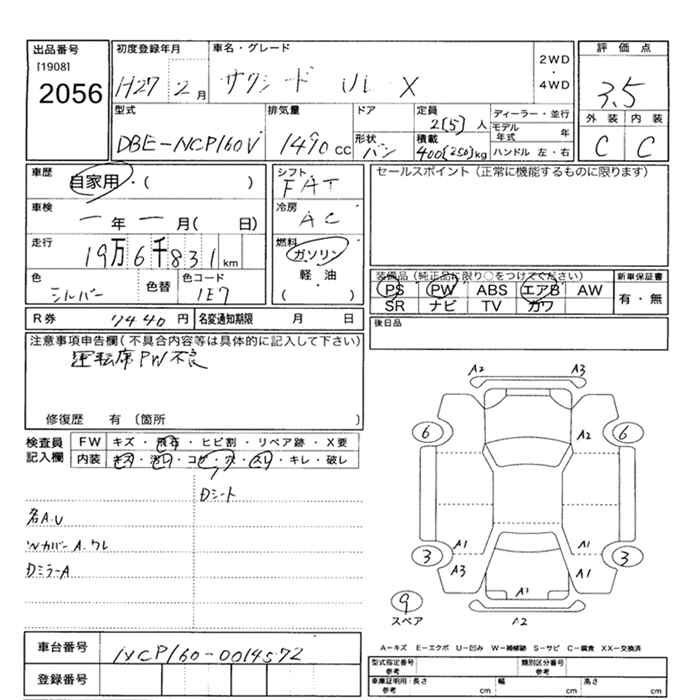 出品番号
[1908]
2056
初度登録年月
H27 2月
車名・グレード
サクシード UL X
2WD
・
4WD
評価点
3.5
外装 内装
C C
型式
DBE-NCP160V
排気量
1490 cc
ドア
形状
バン
定員
2[5]人
積載
400[250]kg
ディーラー・並行
モデル年式 年
ハンドル 左・右
車歴
自家用・( )
車検
一年一月( 日)
走行
19万6千831km
色
シルバー
色替
色コード
1E7
シフト
FAT
冷房
AC
燃料
ガソリン
軽油
( )
セールスポイント(正常に機能するものに限ります)
装備品(純正品に限り○をつけてください)
PS PW ABS エアB AW
SR ナビ TV カワ
新車保証書
有・無
後日品
R券 7440円
名変通知期限 月 日
注意事項申告欄(不具合内容等は具体的に記入して下さい)
運転席PW不良
修復歴 有 (箇所 )
検査員
記入欄
FW キズ・飛石・ヒビ割・リペア跡・X要
内装 キズ・汚レ・コゲ・穴・スレ・キレ・破レ
Dシート
各A.U
Wカバー A.ワレ
DミラーA
A2 A3
6 A2 6
A1 A1
3 A3 A1 A1 3
9
スペア
A2
A-キズ E-エクボ U-凹み W-補修跡 S-サビ C-腐食 XX-交換済
車台番号 NCP160-0014572
登録番号
型式指定番号
参考
類別区分番号
参考
車庫証明用:長さ
参考 cm
幅
cm
高さ
cm